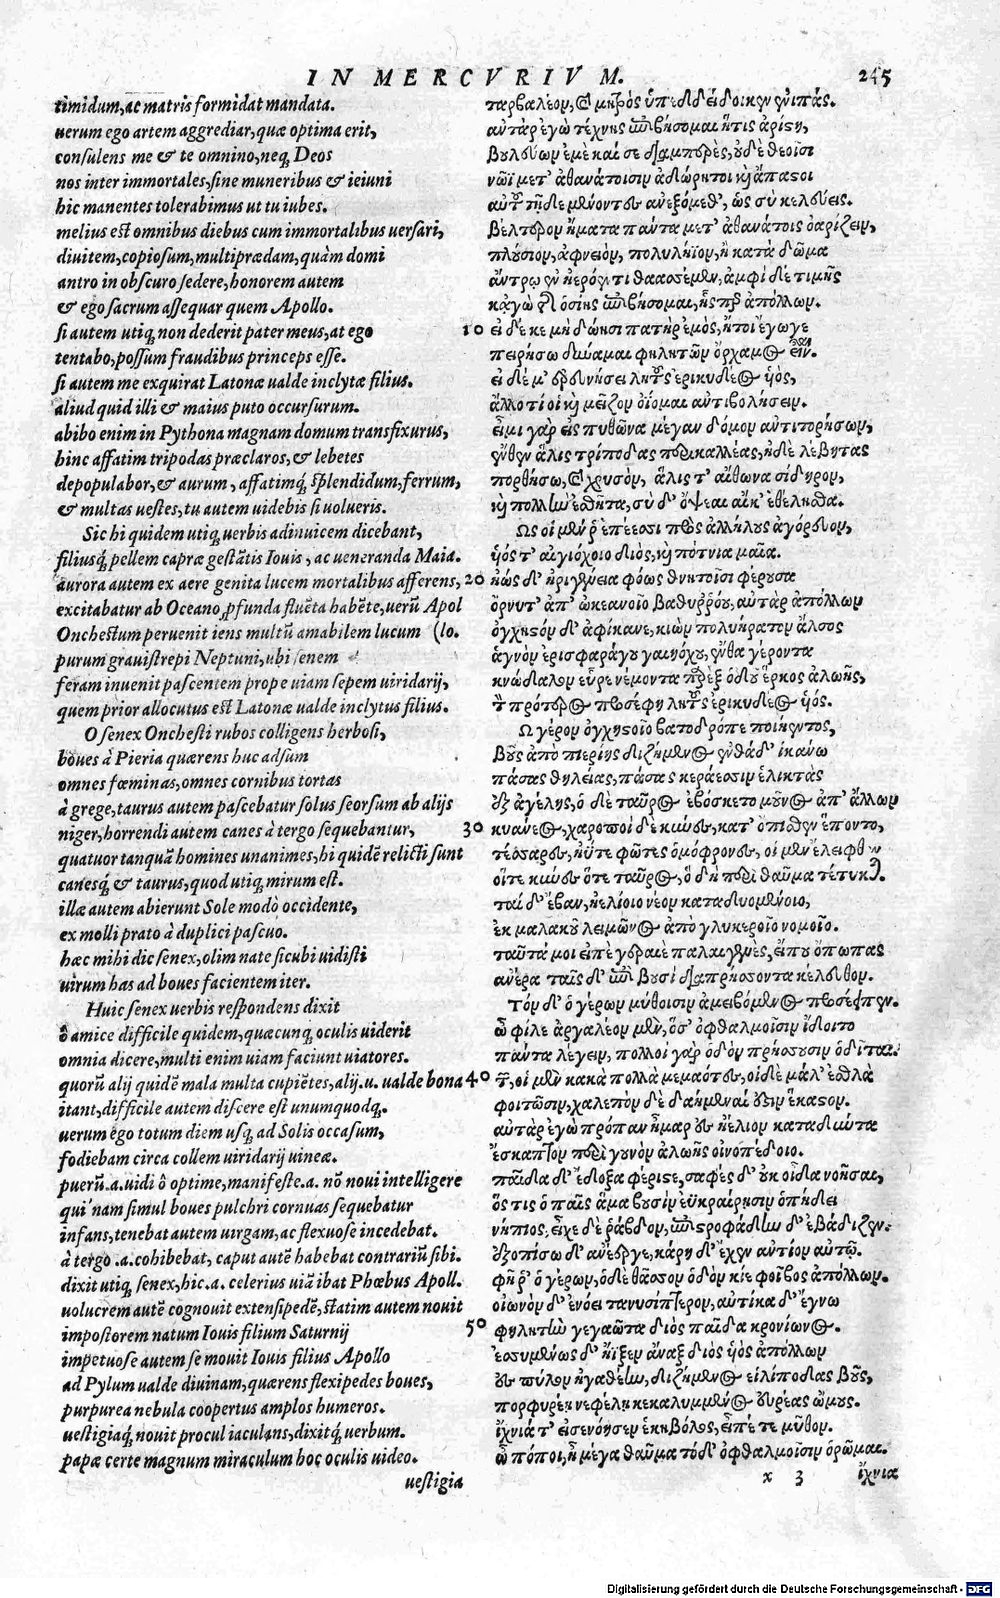 IN MERCVRIVM. 245
timidum,ac matris formidat mandata.
uerum ego artem aggrediar,quæ optima erit,
consulens me & te omnino,neq; Deos
nos inter immortales,sine muneribus & ieiuni
hic manentes tolerabimus ut tu iubes.
melius est omnibus diebus cum immortalibus uersari,
diuitem,copiosum,multiprædam,quàm domi
antro in obscuro sedere,honorem autem
& ego sacrum assequar quem Apollo.
si autem utiq; non dederit pater meus,at ego
tentabo,possum fraudibus princeps esse.
si autem me exquirat Latonæ ualde inclytæ filius.
aliud quid illi & maius puto occursurum.
abibo enim in Pythona magnam domum transfixurus,
hinc affatim tripodas præclaros,& lebetes
depopulabor,& aurum, affatimq́; splendidum,ferrum,
& multas uestes,tu autem uidebis si uolueris.
Sic hi quidem utiq; uerbis adinuicem dicebant,
filiusq́; pellem capræ gestãtis Iouis, ac ueneranda Maia.
aurora autem ex aere genita lucem mortalibus afferens,
excitabatur ab Oceano, ꝓfunda fluẽta habẽte,uerũ Apol
Onchestum peruenit iens multũ amabilem lucum (lo.
purum grauistrepi Neptuni,ubi senem
feram inuenit pascentem prope uiam sepem uiridarij,
quem prior allocutus est Latonæ ualde inclytus filius.
O senex Onchesti rubos colligens herbosi,
boues à Pieria quærens huc adsum
omnes fœminas,omnes cornibus tortas
à grege,taurus autem pascebatur solus seorsum ab alijs
niger,horrendi autem canes à tergo sequebantur,
quatuor tanquã homines unanimes,hi quidẽ relicti sunt
canesq́; & taurus,quod utiq; mirum est.
illæ autem abierunt Sole modò occidente,
ex molli prato à duplici pascuo.
hæc mihi dic senex,olim nate sicubi uidisti
uirum has ad boues facientem iter.
Huic senex uerbis respondens dixit
ô amice difficile quidem,quæcunq; oculis uiderit
omnia dicere,multi enim uiam faciunt uiatores.
quorũ alij quidẽ mala multa cupiẽtes,alij.u. ualde bona
itant,difficile autem discere est unumquodq;.
uerum ego totum diem usq; ad Solis occasum,
fodiebam circa collem uiridarij uineæ.
puerũ.a.uidi ô optime,manifeste.a. nõ noui intelligere
qui nam simul boues pulchri cornuas sequebatur
infans,tenebat autem uirgam,ac flexuose incedebat.
à tergo .a.cohibebat, caput autẽ habebat contrariũ sibi.
dixit utiq; senex,hic.a. celerius uiã ibat Phœbus Apoll.
uolucrem autẽ cognouit extensipedẽ,statim autem nouit
impostorem natum Iouis filium Saturnij
impetuose autem se mouit Iouis filius Apollo
ad Pylum ualde diuinam,quærens flexipedes boues,
purpurea nebula coopertus amplos humeros.
uestigiaq́; nouit procul iaculans,dixitq́; uerbum.
papæ certe magnum miraculum hoc oculis uideo.
uestigia
ταρβαλέον, καὶ μητρὸς ὑπεδείδοικεν ἐνιπάς.
αὐτὰρ ἐγὼ τέχνης ἐπιβήσομαι ἥτις ἀρίστη,
βουλεύων ἐμὲ καί σε διαμπερὲς, οὐδὲ θεοῖσι
νῶϊ μετ' ἀθανάτοισιν ἀδώρητοι καὶ ἄπαστοι
αὐτοῦ τῇδε μένοντες ἀνεξόμεθ', ὡς σὺ κελεύεις.
βέλτερον ἤματα πάντα μετ' ἀθανάτοις ὀαρίζειν,
πλούσιον, ἀφνειὸν, πολυλήϊον, ἢ κατὰ δῶμα
ἄντρῳ ἐν ἠερόεντι θαασσέμεν, ἀμφὶ δὲ τιμῆς
κᾀγὼ τῆς ὁσίης ἐπιβήσομαι, ἧς περ ἀπόλλων.
10 εἰ δέ κε μὴ δώῃσι πατὴρ ἐμὸς, ἤτοι ἔγωγε
πειρήσω δύναμαι φηλητῶν ὄρχαμος εἶναι.
εἰ δέ μ' ἐρευνήσει λητοῦς ἐρικυδέος υἱὸς,
ἄλλο τί οἱ καὶ μεῖζον ὀΐομαι ἀντιβολήσειν.
εἶμι γὰρ εἰς πυθῶνα μέγαν δόμον ἀντιτορήσων,
ἔνθεν ἅλις τρίποδας περικαλλέας, ἠδὲ λέβητας
πορθήσω, καὶ χρυσὸν, ἅλις τ' αἴθωνα σίδηρον,
καὶ πολλὴν ἐσθῆτα, σὺ δ' ὄψεαι αἴ κ' ἐθέλησθα.
Ὣς οἱ μέν ῥ' ἐπέεσσι πρὸς ἀλλήλους ἀγόρευον,
υἱός τ' αἰγιόχοιο διὸς, καὶ πότνια μαῖα.
20 ἠὼς δ' ἠριγένεια φόως θνητοῖσι φέρουσα
ὄρνυτ' ἀπ' ὠκεανοῖο βαθυῤῥόου, αὐτὰρ ἀπόλλων
ὀγχηστὸν δ' ἀφίκανε, κιὼν πολυήρατον ἄλσος
ἁγνὸν ἐρισφαράγου γαιηόχου, ἔνθα γέροντα
κνώδαλον εὗρε νέμοντα παρὲξ ὁδοῦ ἕρκος ἀλωῆς,
τὸν πρότερος προσέφη λητοῦς ἐρικυδέος υἱός.
Ὦ γέρον ὀγχηστοῖο βατοδρόπε ποιήεντος,
βοῦς ἀπὸ πιερίης διζήμενος ἐνθάδ' ἱκάνω
πάσας θηλείας, πάσας κεράεσσιν ἑλικτὰς
ἐξ ἀγέλης, ὁ δὲ ταῦρος ἐβόσκετο μοῦνος ἀπ' ἄλλων
30 κυάνεος, χαροποὶ δὲ κύνες, κατ' ὄπισθεν ἕποντο,
τέσσαρες, ἠΰτε φῶτες ὁμόφρονες, οἱ μὲν ἔλειφθεν
οἵτε κύνες ὅτε ταῦρος, ὃ δὴ περὶ θαῦμα τέτυκται.
ταὶ δ' ἔβαν, ἠελίοιο νέον καταδυομένοιο,
ἐκ μαλακοῦ λειμῶνος ἀπὸ γλυκεροῖο νομοῖο.
ταῦτά μοι εἰπὲ γεραιὲ παλαιγενὲς, εἴπου ὄπωπας
ἀνέρα ταῖς δ' ἐπὶ βουσὶ διαπρήσσοντα κέλευθον.
Τὸν δ' ὁ γέρων μύθοισιν ἀμειβόμενος προσέειπεν.
ὦ φίλε ἀργαλέον μὲν, ὅσ' ὀφθαλμοῖσιν ἴδοιτο
πάντα λέγειν, πολλοὶ γὰρ ὁδὸν πρήσσουσιν ὁδῖται.
40 τῶν, οἱ μὲν κακὰ πολλὰ μεμαότες, οἱ δὲ μάλ' ἐσθλὰ
φοιτῶσιν, χαλεπὸν δὲ δαήμεναί ἐστιν ἕκαστον.
αὐτὰρ ἐγὼ πρόπαν ἦμαρ ἐς ἠέλιον καταδύντα
ἔσκαπτον περὶ γουνὸν ἀλωῆς οἰνοπέδοιο.
παῖδα δ' ἔδοξα φέριστε, σαφὲς δ' οὐκ οἶδα νοῆσαι,
ὅς τις ὁ παῖς ἅμα βουσὶν ἐϋκραίρῃσιν ὀπήδει
νήπιος, εἶχε δὲ ῥάβδον, ἐπιστροφάδην δ' ἐβάδιζεν.
ἐξοπίσω δ' ἀνέεργε, κάρη δ' ἔχεν ἀντίον αὐτῷ.
φῆ ῥ' ὁ γέρων, ὁ δὲ θᾶσσον ὁδὸν κίε φοῖβος ἀπόλλων.
οἰωνὸν δ' ἐνόει τανυσίπτερον, αὐτίκα δ' ἔγνω
50 φηλητὴν γεγαῶτα διὸς παῖδα κρονίωνος.
ἐσσυμένως δ' ἤϊξεν ἄναξ διὸς υἱὸς ἀπόλλων
ἐς πύλον ἠγαθέην, διζήμενος εἰλίποδας βοῦς,
πορφυρέῃ νεφέλῃ κεκαλυμμένος εὐρέας ὤμους.
ἴχνιά τ' εἰσενόησεν ἑκηβόλος, εἶπέ τε μῦθον.
ὢ πόποι, ἦ μέγα θαῦμα τόδ' ὀφθαλμοῖσιν ὁρῶμαι.
x 3 ἴχνια
Digitalisierung gefördert durch die Deutsche Forschungsgemeinschaft - DFG